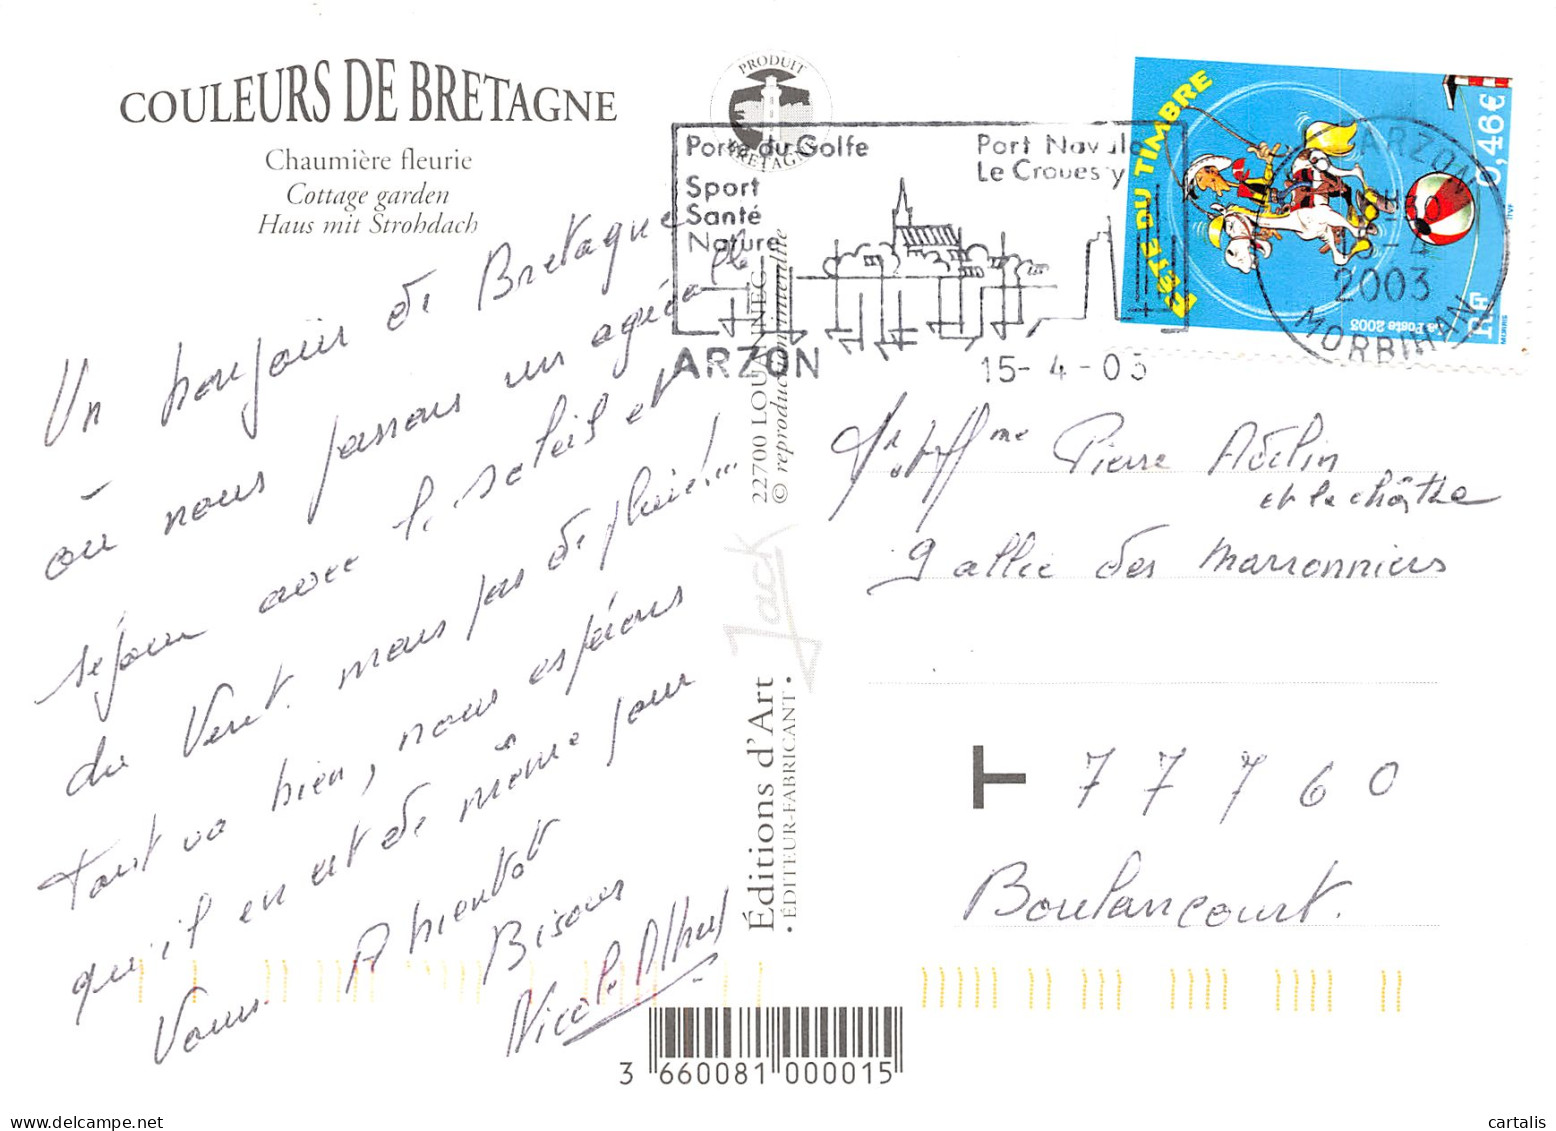 COULEURS DE BRETAGNE
Chaumière fleurie
Cottage garden
Haus mit Strohdach
PRODUIT
BRETAGNE
Porte du Golfe
Sport
Santé
Nature
Port Navalo
Le Crouesty
ARZON
15-4-03
FÊTE DU TIMBRE
0,46€
RF
La Poste 2003
ARZON
2003
MORBIHAN
Un bonjour de Bretagne
où nous passons un agréable
séjour avec le soleil et
du vent mais pas de pluie!...
Tout va bien, nous espérons
qu'il en est de même pour
vous. A bientôt
Bisous
Nicole
22700 LOUANNEC
© reproduction interdite
Jack
Éditions d'Art
• ÉDITEUR-FABRICANT •
Mr et Mme Pierre Adelin
et la châtte
9 allée des marronniers
77760
Boulancourt.
3 660081 000015
© cartalis